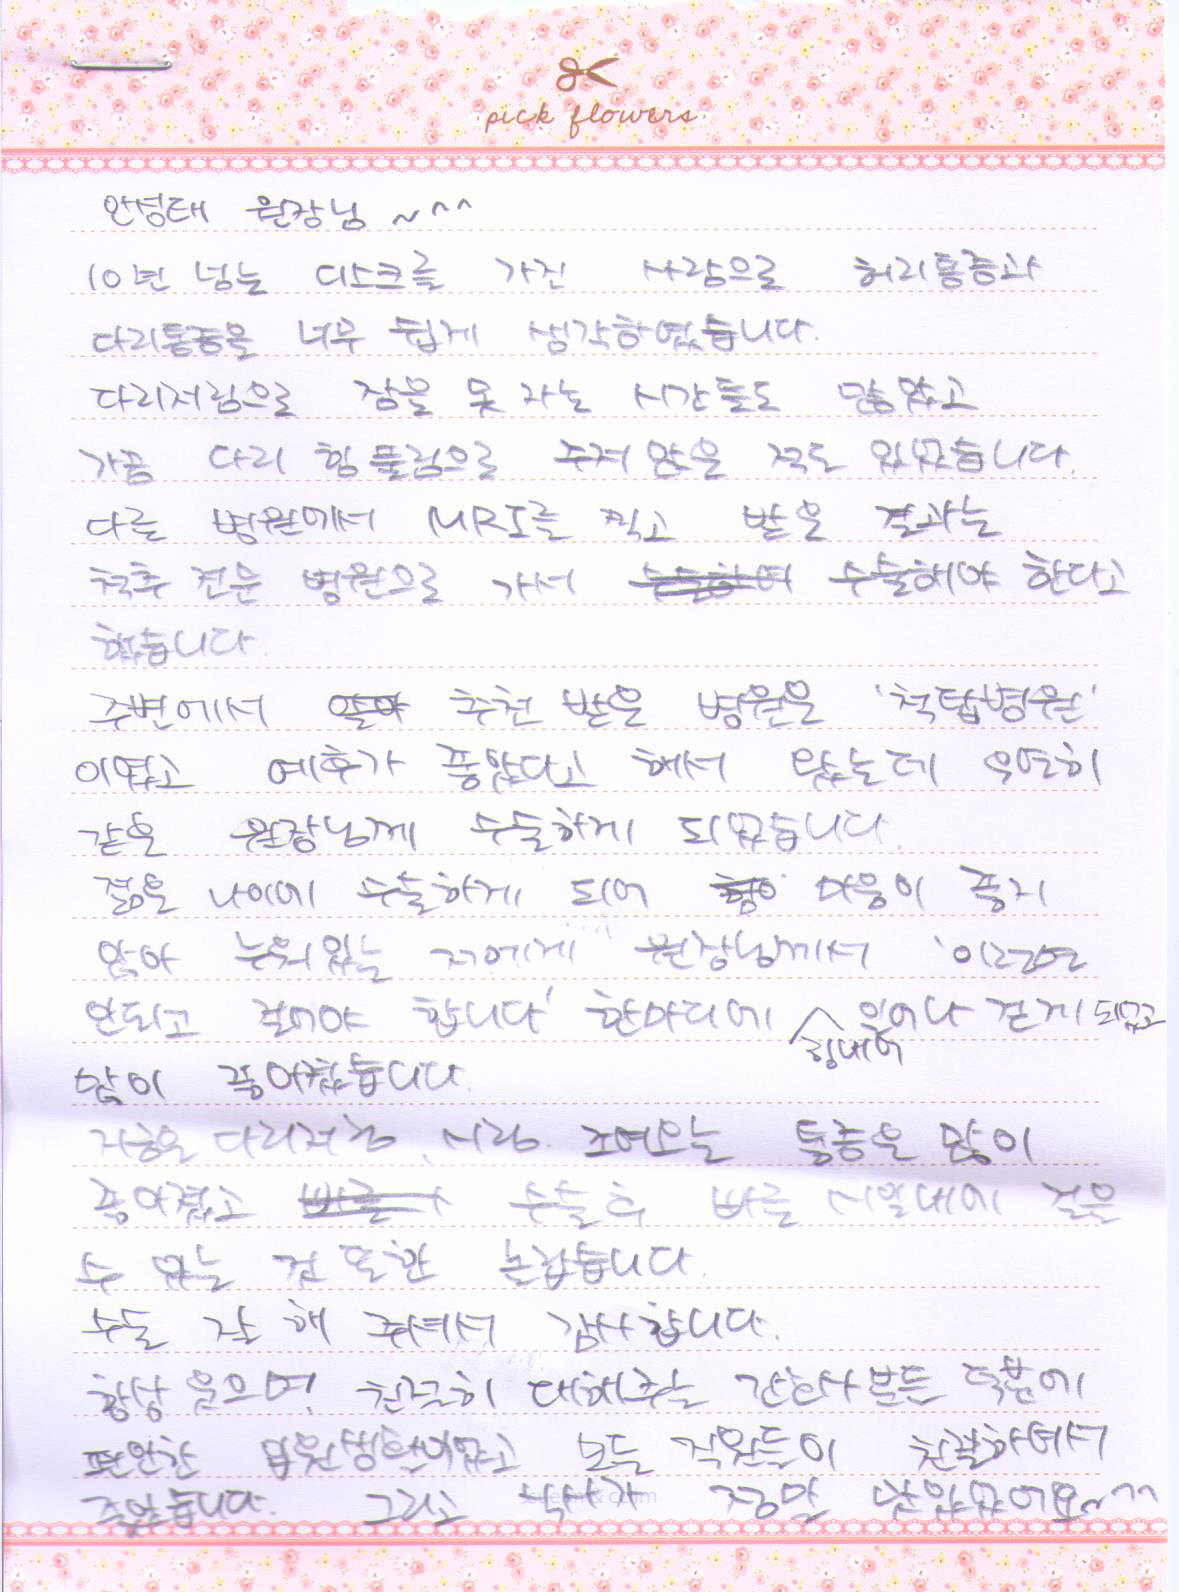 pick flowers
안성태 원장님 ~^^
10년 넘는 디스크를 가진 사람으로 허리통증과
다리통증을 너무 쉽게 생각하였습니다.
다리저림으로 잠을 못 자는 시간들도 많았고
가끔 다리 힘 풀림으로 주저 앉은 적도 있었습니다.
다른 병원에서 MRI를 찍고 받은 결과는
척추 전문 병원으로 가서 수술해야 한다고
했습니다.
주변에서 추천 받은 병원은 '척탑병원'
이였고 예후가 좋았다고 해서 왔는데 우연히
같은 원장님께 수술하게 되었습니다.
젊은 나이에 수술하게 되어 마음이 좋지
않아 누워있는 저에게 원장님께서 '이러면
안되고 걸어야 합니다' 한마디에 힘내어 일어나 걷게 되었고
많이 좋아졌습니다.
지금은 다리저림, 시림, 조여오는 통증은 많이
좋아졌고 수술 후 빠른 시일내에 걸을
수 있는 것 또한 놀랍습니다.
수술 잘 해 주셔서 감사합니다.
항상 웃으며, 친절히 대해주는 간호사 분들 덕분에
편안한 입원생활이었고 모든 직원들이 친절하여서
좋았습니다. 그리고 식사가 정말 맛있었어요~^^